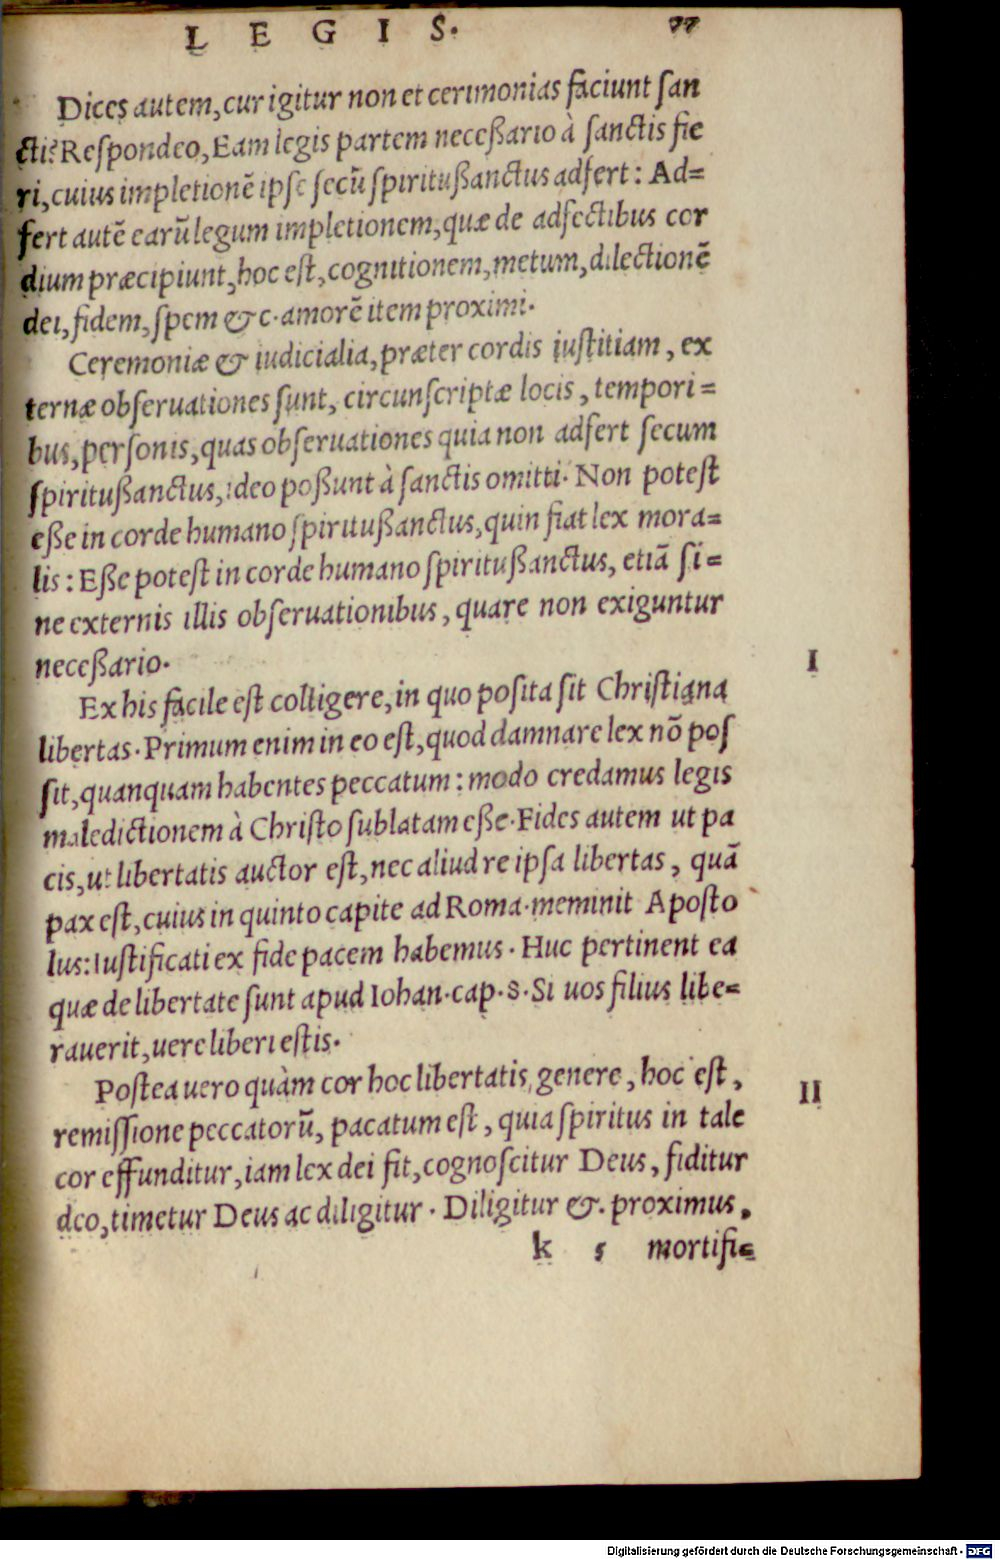 LEGIS. 77
Dices autem, cur igitur non et cerimonias faciunt san
cti? Respondeo, Eam legis partem neceßario à sanctis fie
ri, cuius impletionē ipse secū spiritußanctus adfert: Ad=
fert autē earū legum impletionem, quæ de adfectibus cor
dium præcipiunt, hoc est, cognitionem, metum, dilectionē
dei, fidem, spem &c. amorē item proximi.
Ceremoniæ & iudicialia, præter cordis iustitiam, ex
ternæ obseruationes sunt, circunscriptæ locis, tempori=
bus, personis, quas obseruationes quia non adfert secum
spiritußanctus, ideo poßunt à sanctis omitti. Non potest
eße in corde humano spiritußanctus, quin fiat lex mora=
lis: Eße potest in corde humano spiritußanctus, etiā si=
ne externis illis obseruationibus, quare non exiguntur
neceßario.
I
Ex his facile est colligere, in quo posita sit Christiana
libertas. Primum enim in eo est, quod damnare lex nō pos
sit, quanquam habentes peccatum: modo credamus legis
maledictionem à Christo sublatam eße. Fides autem ut pa
cis, ut libertatis auctor est, nec aliud re ipsa libertas, quā
pax est, cuius in quinto capite ad Roma. meminit Aposto
lus: Iustificati ex fide pacem habemus. Huc pertinent ea
quæ de libertate sunt apud Iohan. cap. 8. Si uos filius libe=
rauerit, uere liberi estis.
II
Postea uero quàm cor hoc libertatis genere, hoc est,
remissione peccatorū, pacatum est, quia spiritus in tale
cor effunditur, iam lex dei fit, cognoscitur Deus, fiditur
deo, timetur Deus ac diligitur. Diligitur &. proximus,
k 5 mortifi=
Digitalisierung gefördert durch die Deutsche Forschungsgemeinschaft - DFG